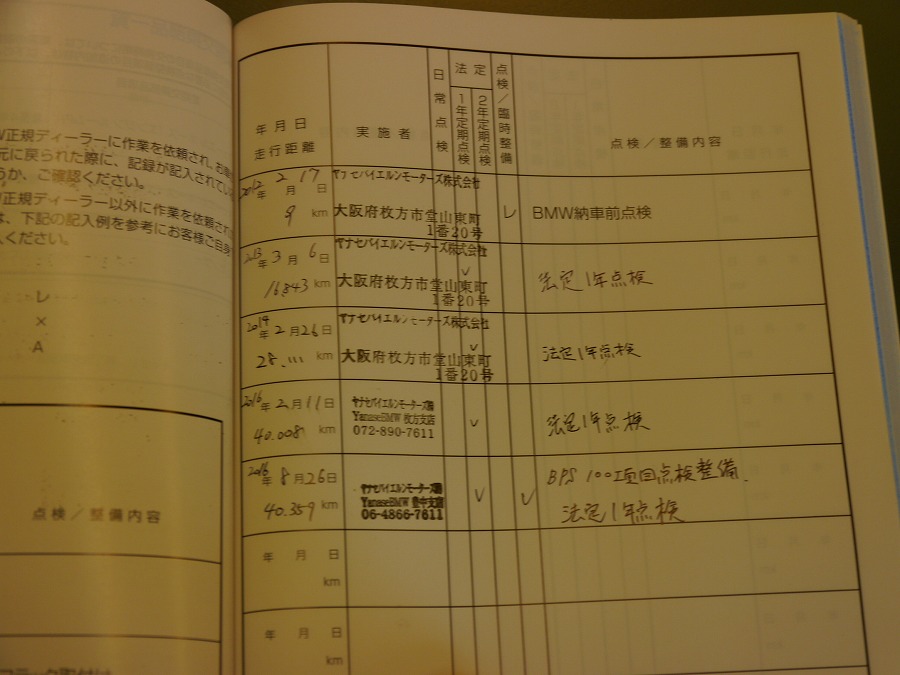 正規ディーラーに作業を依頼され、お
元に戻られた際に、記録が記入されてい
うか、ご確認ください。
正規ディーラー以外に作業を依頼され
は、下記の記入例を参考にお客様ご自身
ください。
レ
×
A
点検／整備内容
年月日
走行距離
実施者
日常点検
法定
1年定期点検
2年定期点検
点検／臨時整備
点検／整備内容
2012年 2月 17日
ヤナセバイエルンモーターズ株式会社
9 km
大阪府枚方市堂山東町
1番20号
レ
BMW納車前点検
2013年 3月 6日
ヤナセバイエルンモーターズ株式会社
16,843 km
大阪府枚方市堂山東町
1番20号
レ
法定1年点検
2014年 2月 26日
ヤナセバイエルンモーターズ株式会社
28.111 km
大阪府枚方市堂山東町
1番20号
レ
法定1年点検
2016年 2月 11日
ヤナセバイエルンモーターズ㈱
YanaseBMW 枚方支店
40.008 km
072-890-7611
レ
法定1年点検
2016年 8月 26日
ヤナセバイエルンモーターズ㈱
YanaseBMW 豊中支店
40.359 km
06-4866-7611
レ
レ
BPS 100項目点検整備.
法定1年点検
年 月 日
km
年 月 日
km